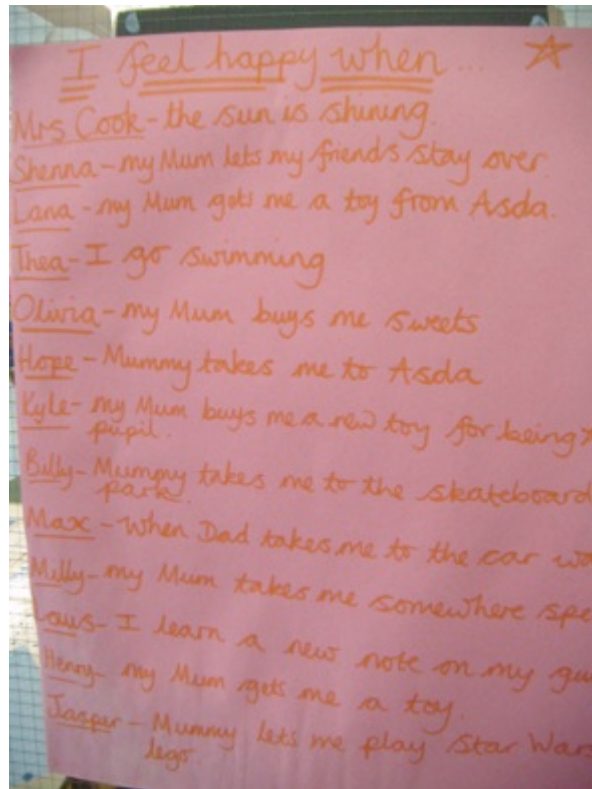 I feel happy when...
Mrs Cook - the sun is shining.
Shenna - my Mum lets my friends stay over.
Lana - my Mum gets me a toy from Asda.
Thea - I go swimming
Olivia - my Mum buys me sweets
Hope - Mummy takes me to Asda
Kyle - my Mum buys me a new toy for being
pupil.
Billy - Mummy takes me to the skateboard
park.
Max - When Dad takes me to the car
Milly - my Mum takes me somewhere
I learn a new note on my
Henry - my Mum gets me a toy.
Jasper - Mummy lets me play Star Wars
lego.